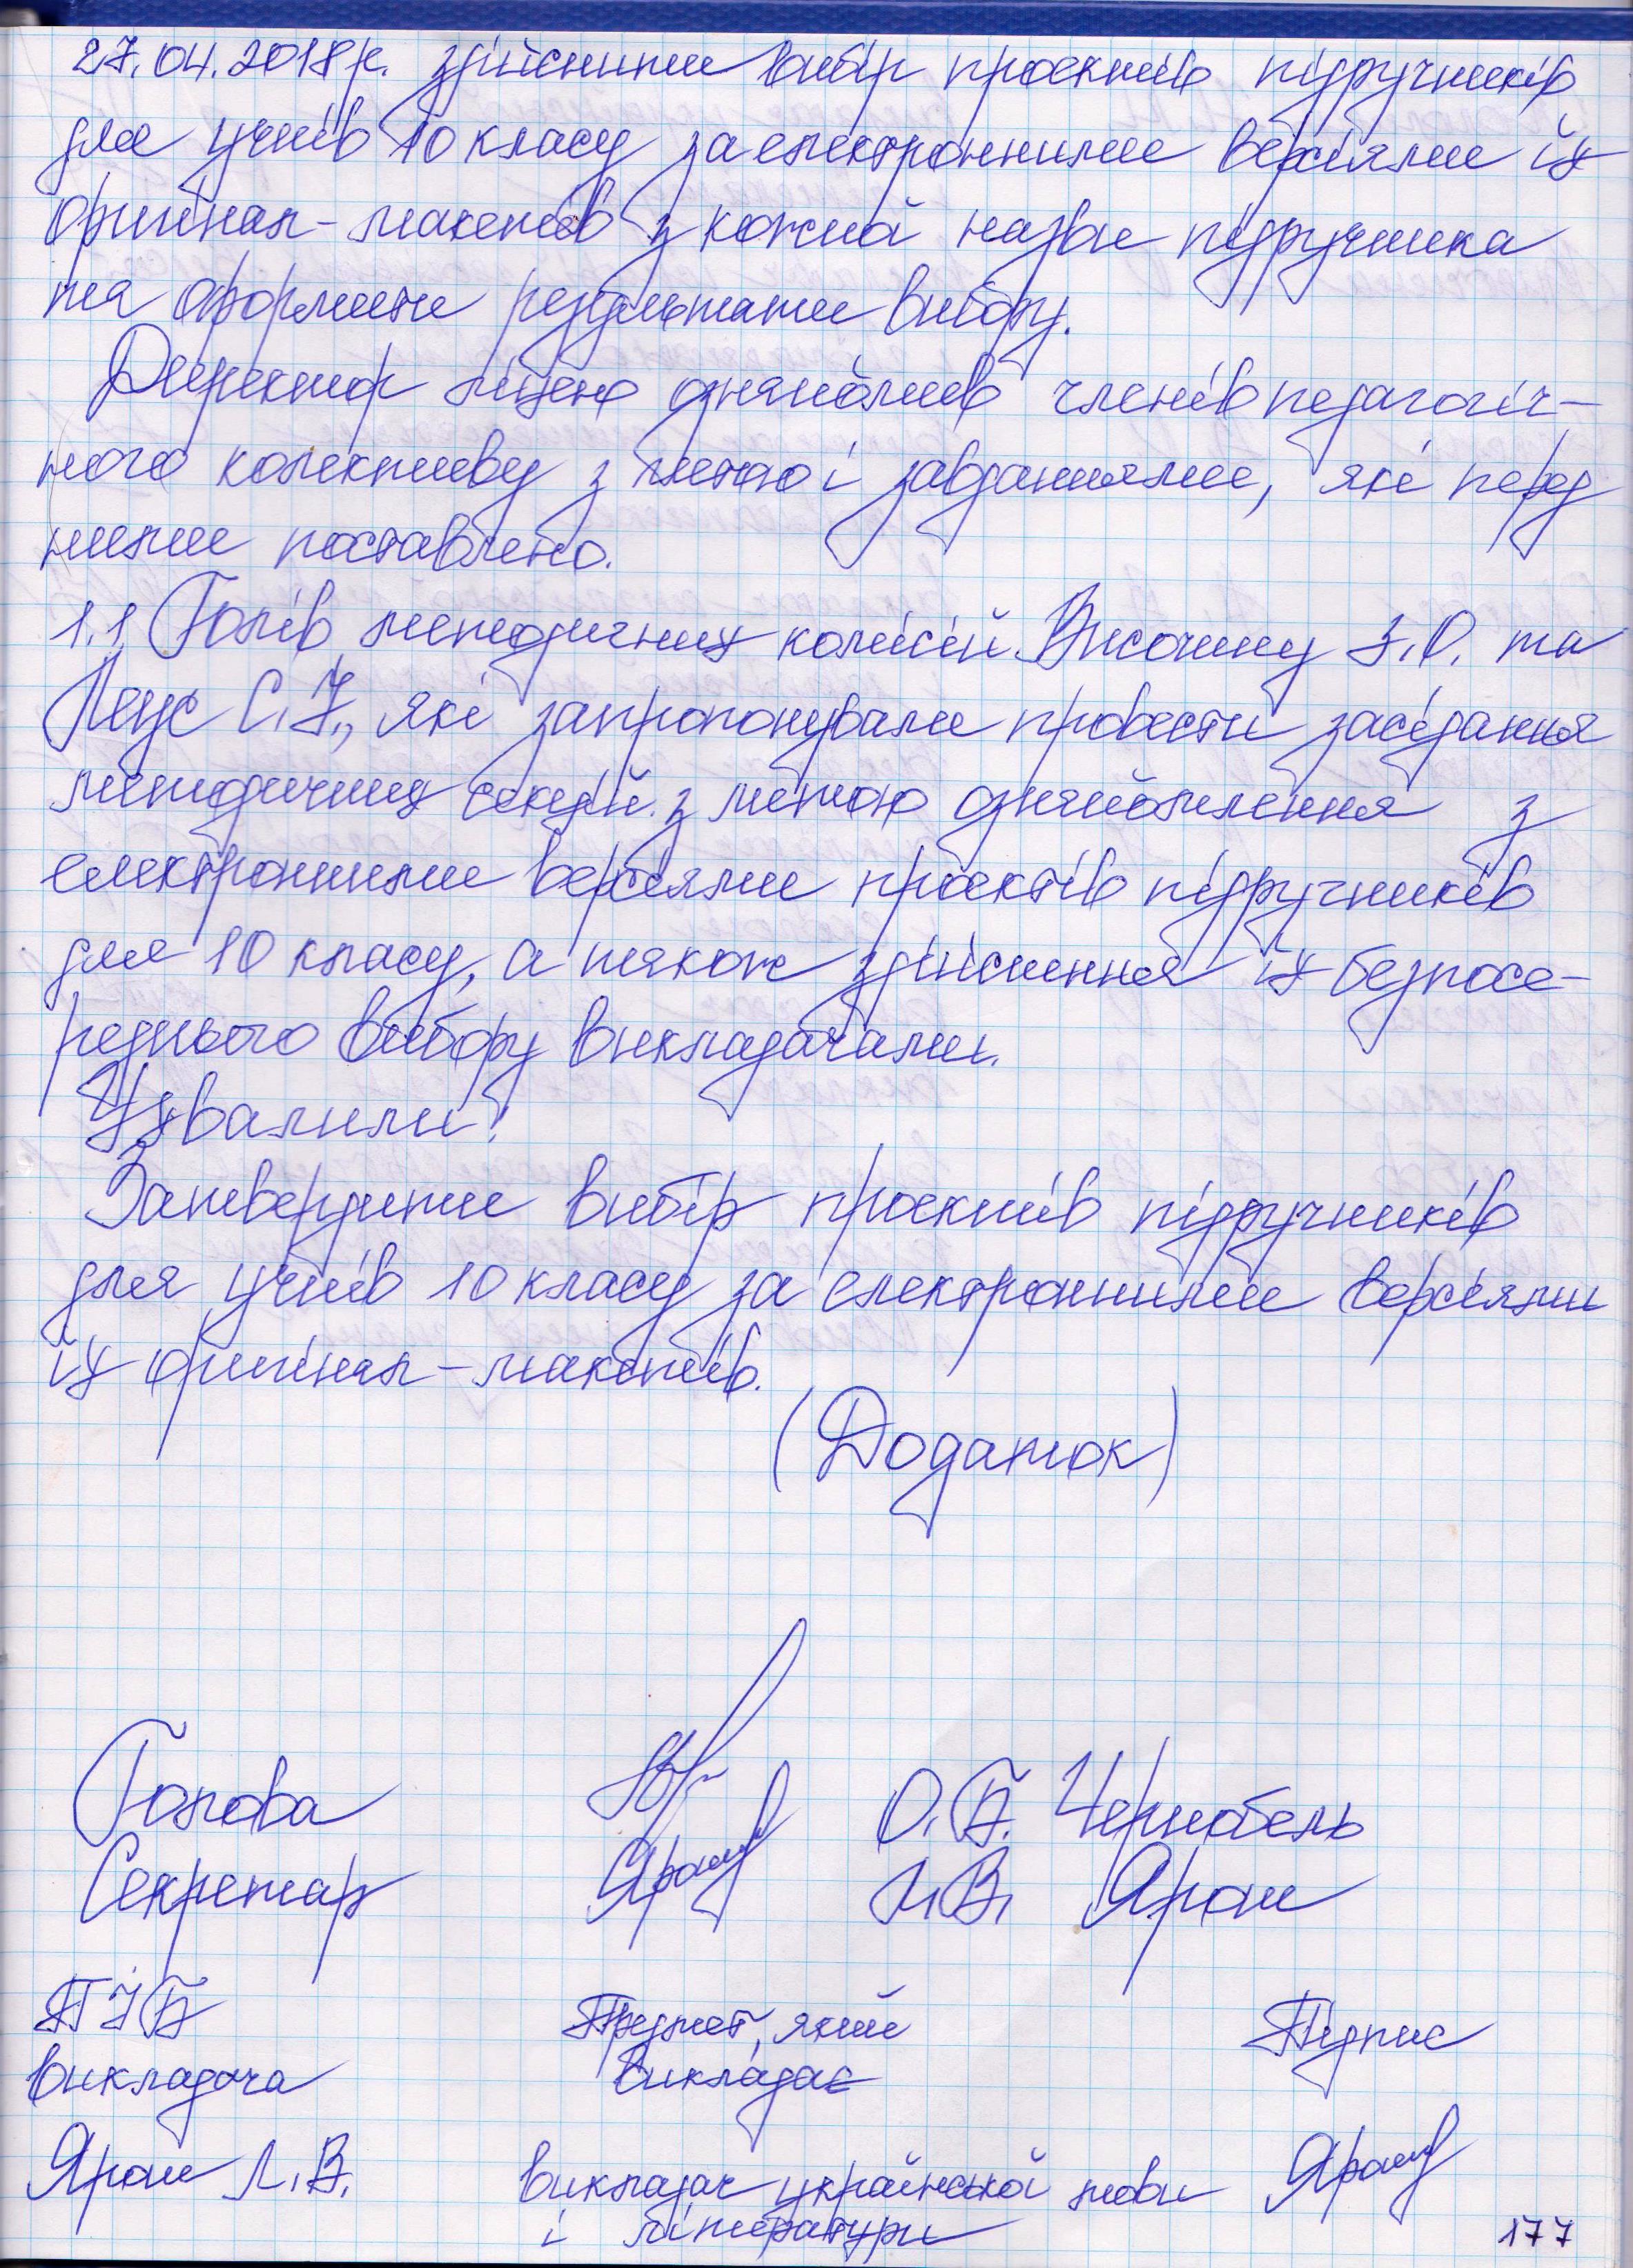 27.04.2018р. здійснити вибір проектів підручників
для учнів 10 класу за електронними версіями їх
оригінал-макетів з кожної назви підручника
та оформити результати вибору.
Директор ліцею ознайомив членів педагогіч-
ного колективу з метою і завданнями, які перед
ними поставлено.
1.1 Голів методичних комісій Височину З.О. та
Леус С.І., які запропонували провести засідання
методичних секцій з метою ознайомлення з
електронними версіями проектів підручників
для 10 класу, а також здійснення їх безпосе-
реднього вибору викладачами.
Ухвалили:
Затвердити вибір проектів підручників
для учнів 10 класу за електронними версіями
їх оригінал-макетів.
(Додаток)
Голова О.Б. Чернобель
Секретар Яром Л.В. Яром
ПІБ Предмет, який Підпис
викладача викладає
Яром Л.В. викладач української мови Яром
і літератури
177